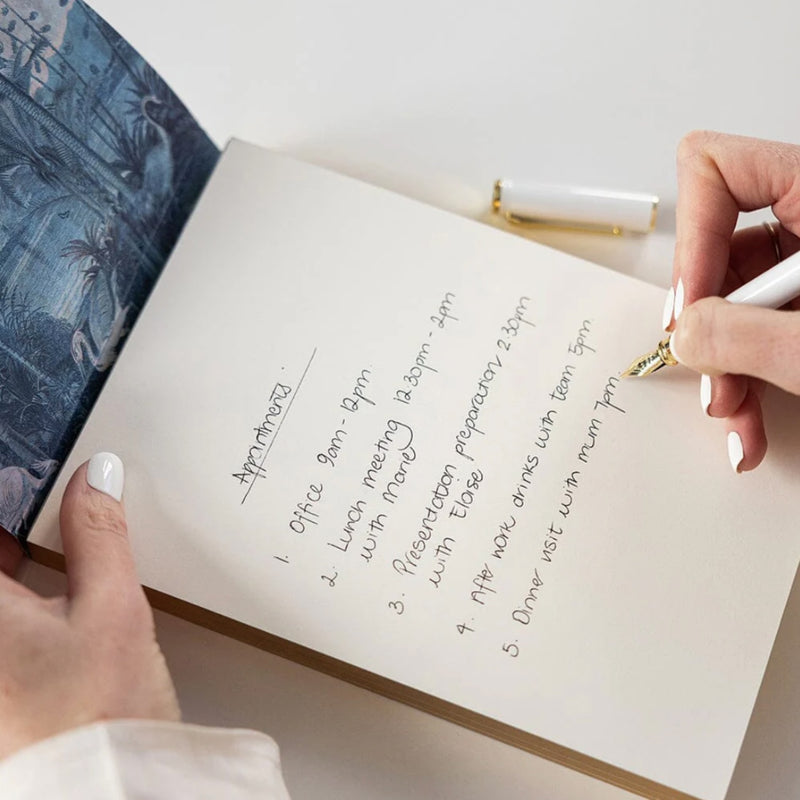 Appointments.
1. Office 9am - 12pm.
2. Lunch meeting 12.30pm - 2pm
with Marie
3. Presentation preparation 2.30pm
with Eloise
4. After work drinks with team 5pm.
5. Dinner visit with mum 7pm.